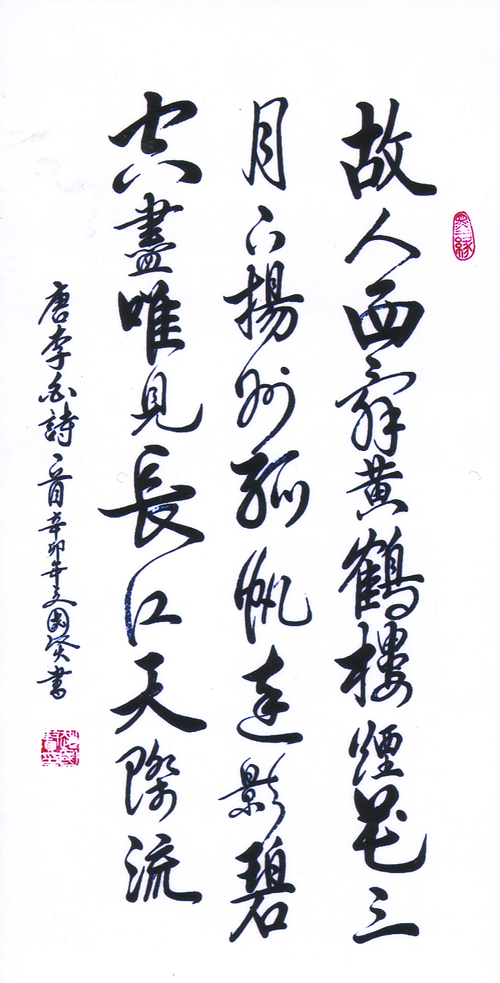 墨緣
故人西辭黄鶴樓煙花三
月下揚州孤帆遠影碧
空盡唯見長江天際流
唐李白詩一首辛卯年文國賢書